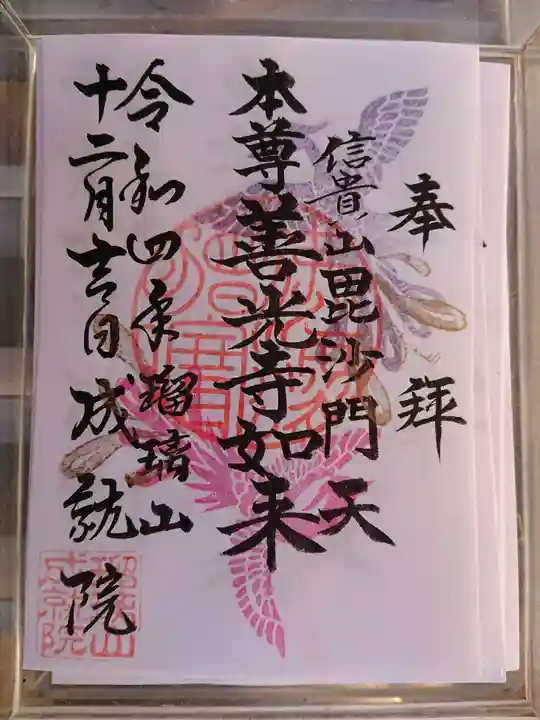 奉拜
信貴山毘沙門天
本尊善光寺如来
令和四年瑠璃山
十二月吉日成就院
瑠璃山
成就院